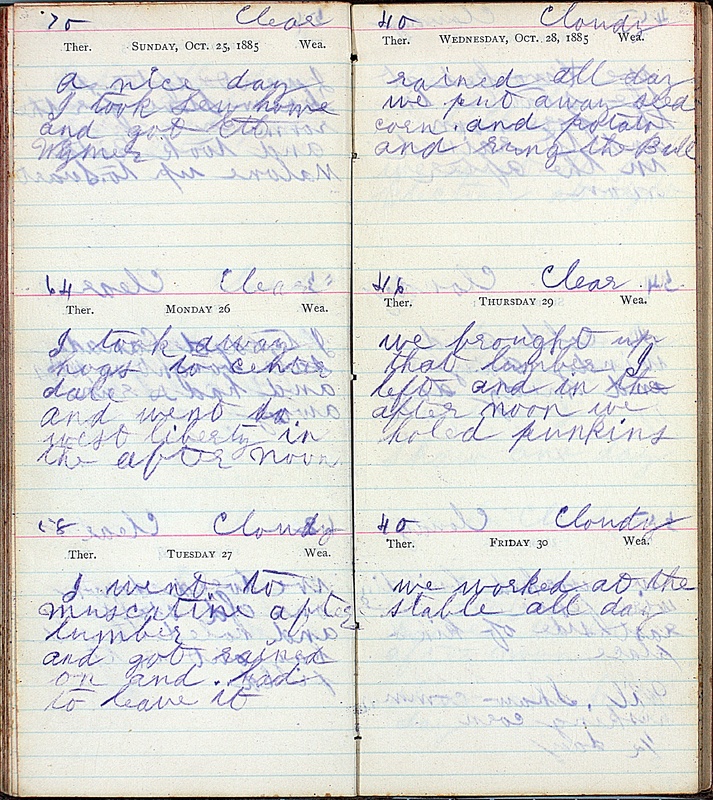 70 Clear
Ther. SUNDAY, OCT. 25, 1885 Wea.
a nice day
I took home
and got
Wymer
64 Clear
Ther. MONDAY 26 Wea.
I took away
hogs to center
dale
and went to
west liberty in
the after noon
58 Cloudy
Ther. TUESDAY 27 Wea.
I went to
muscatine after
lumber
and got rained
on and had
to leave it
40 Cloudy
Ther. WEDNESDAY, OCT. 28, 1885 Wea.
rained all day
we put away seed
corn and potato
and rung the Bull
46 Clear
Ther. THURSDAY 29 Wea.
we brought up
that lumber I
left and in the
after noon we
holed punkins
40 Cloudy
Ther. FRIDAY 30 Wea.
we worked at the
stable all day